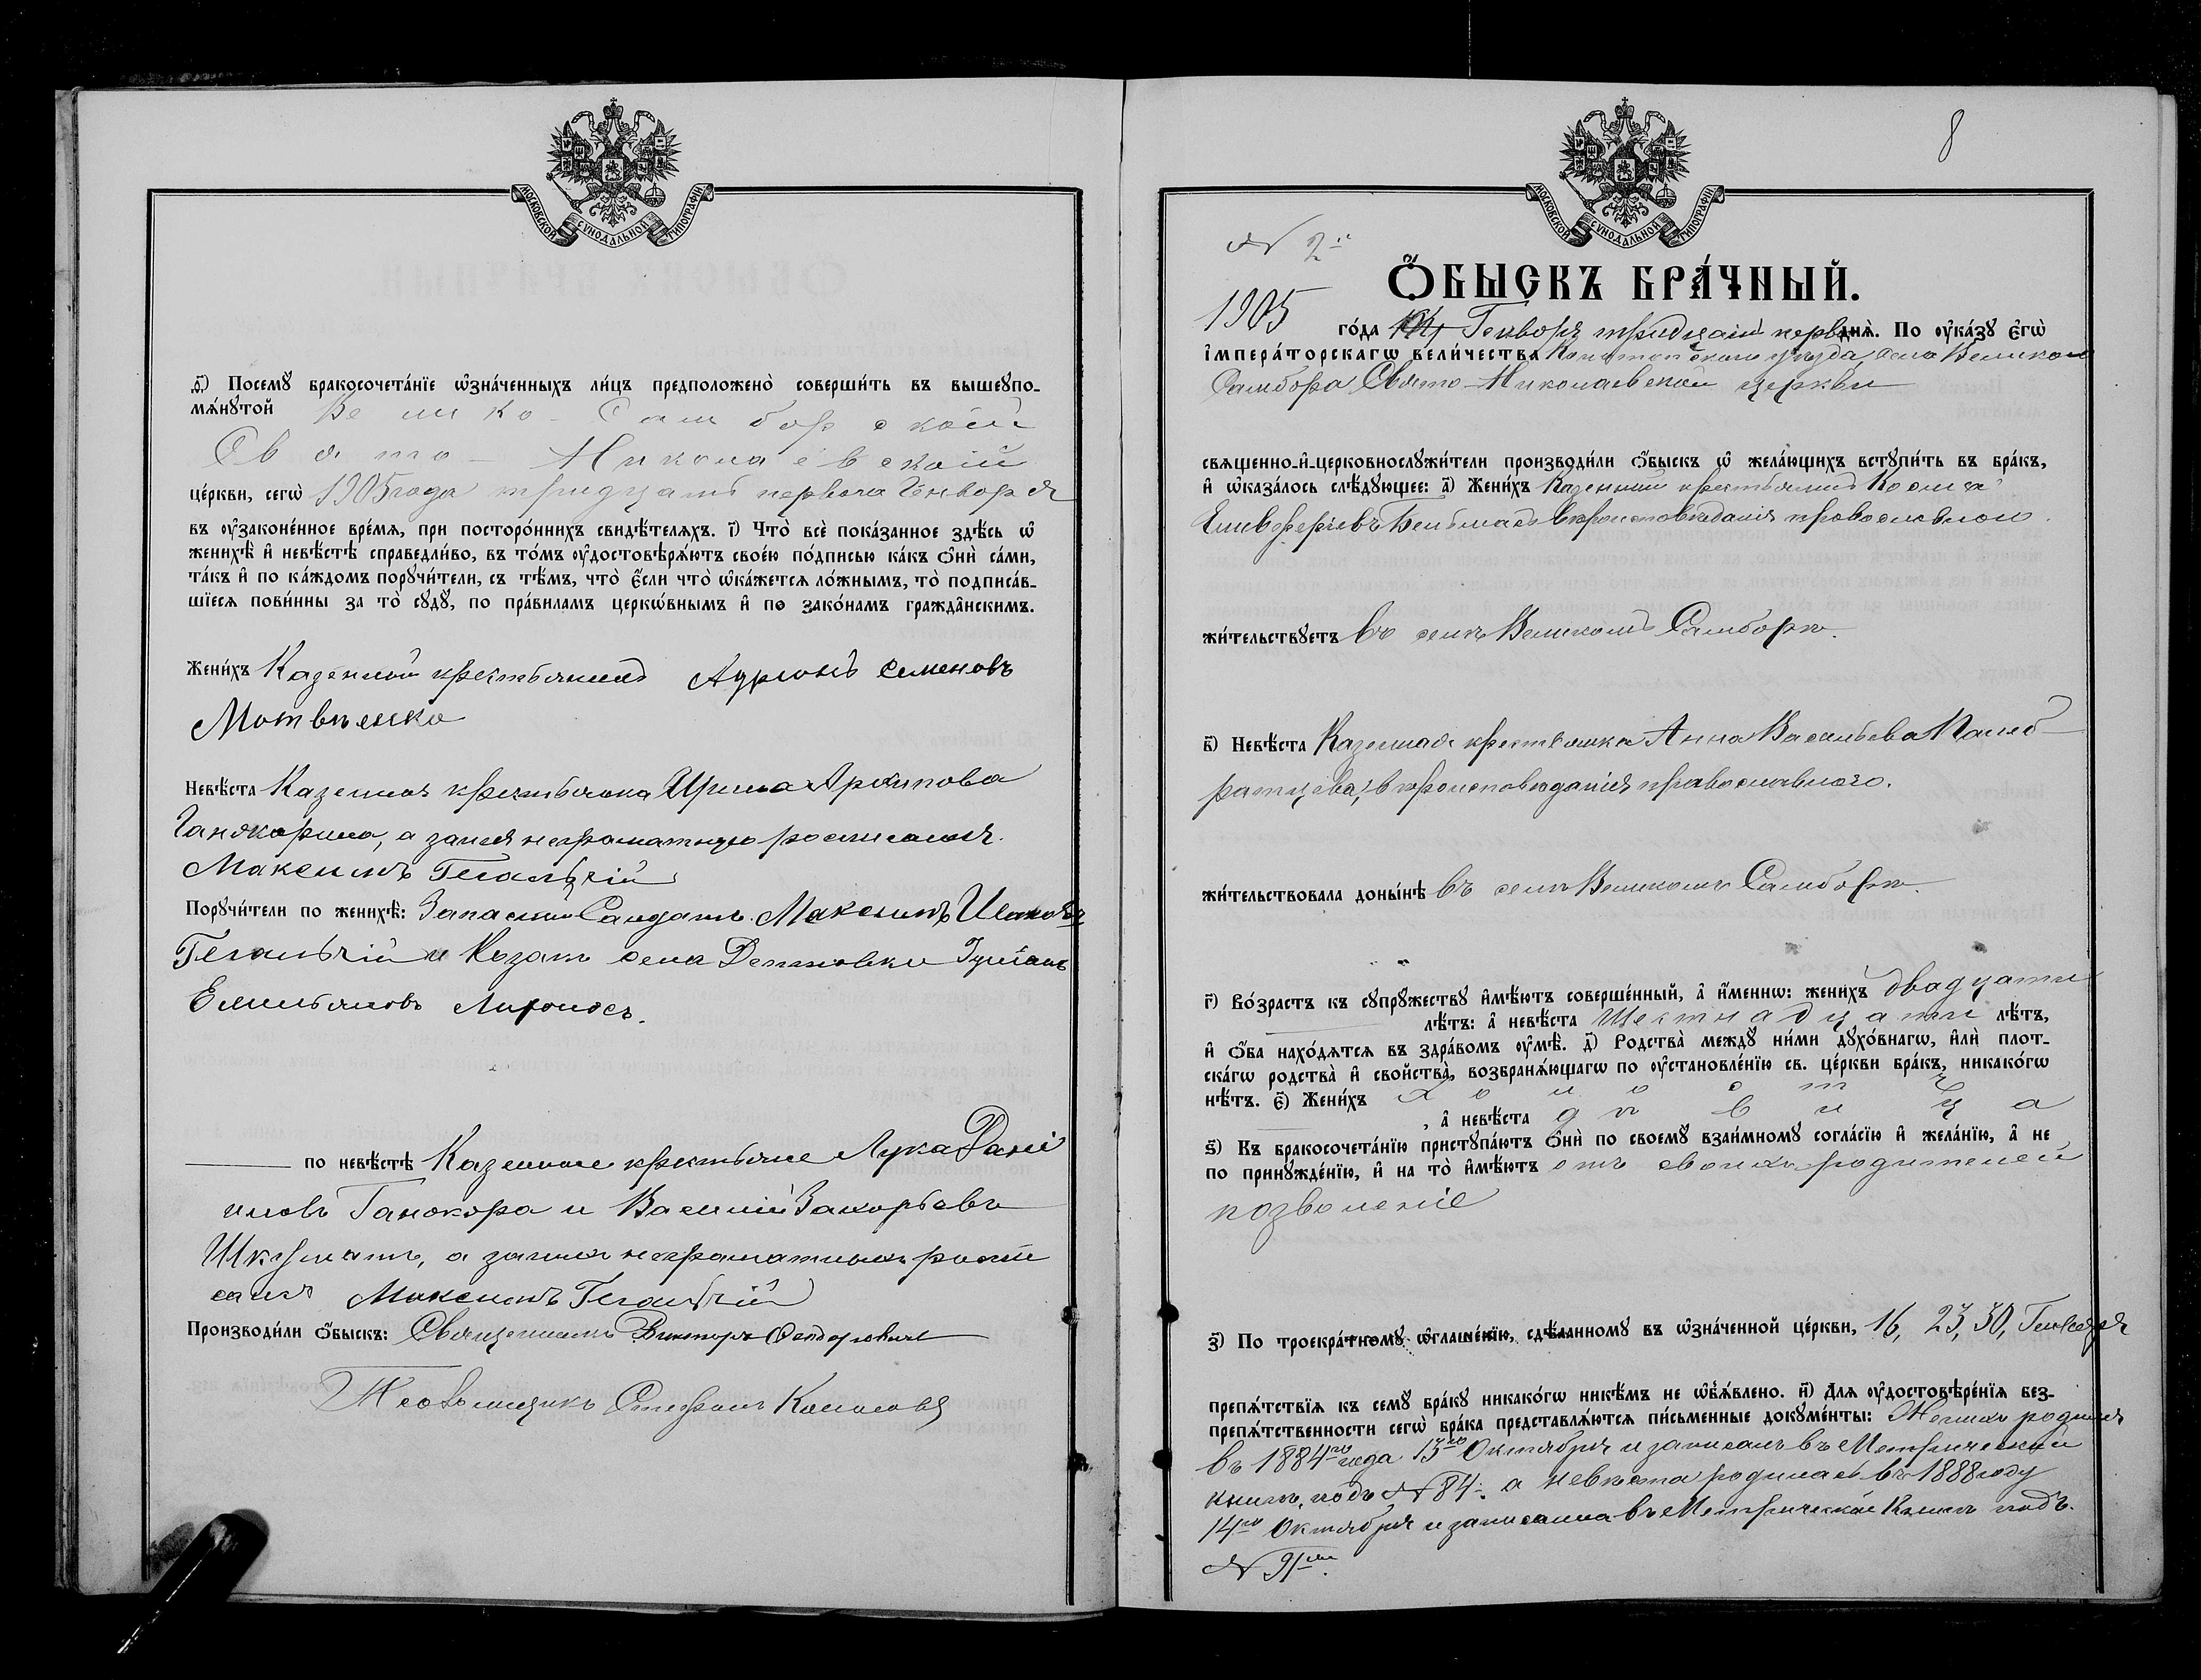 МОСКОВСКОЙ СѴНОДАЛЬНОЙ ТИПОГРАФІИ
ѳ҃) Посемꙋ̀ бракосочета́нїе ѡ҆зна́ченныхъ ли́цъ предположено̀ соверши́ть въ вышеꙋпо-
мѧ́нꙋтой Велико-Самборской
Свято-Николаевской
це́ркви, сегѡ̀ 1905 года тридцать первого Генворя
въ ᲂу҆законе́нное вре́мѧ, при посторо́ннихъ свидѣ́телѧхъ. і҃) Что̀ всѐ показанное здѣ́сь ѡ҆
женихѣ̀ и҆ невѣ́стѣ справедли́во, въ то́мъ ᲂу҆достовѣрѧ́ютъ свое́ю по́дписью ка́къ ѻ҆нѝ са́ми,
та́къ и҆ по ка́ждомъ порꙋчи́тели, съ тѣ́мъ, что̀ є҆́сли что̀ ѡ҆ка́жетсѧ ло́жнымъ, то̀ подписа́в-
шїесѧ пови́нны за то̀ сꙋдꙋ̀, по пра́виламъ церкѡ́внымъ и҆ по зако́намъ гражда̂нскимъ.
Жени́хъ Казенный крестьянинъ Адріонъ Семеновъ
Мотвѣенко
Невѣ́ста Казенная крестьянка Ирина Архипова
а занея неграматную росписался
Максимъ
Порꙋчи́тели по женихѣ̀: Запасный Салдатъ Максимъ
и Козакъ села Дептовки
Емильяновъ
по невѣ́стѣ Казенные крестьяне Лука Дани
иловъ Ганжора и Василій Захорьевъ
а заних неграматных роспи
сался Максимъ
Производи́ли ѻ҆́быскъ: Священникъ Викторъ Федоровичъ
Псаломщикъ Стефанъ
8
МОСКОВСКОЙ СѴНОДАЛЬНОЙ ТИПОГРАФІИ
N 2й
Ѻ҆́БЫСКЪ БРА́ЧНЫЙ.
1905 го́да Генворя тридцать перв дня̀. По ᲂу҆ка́зꙋ є҆гѡ̀
і҆мпера́торскагѡ вели́чества Конотопского уѣзда, села Великого
Самбора Свято-Николаевской церкви
свѧщенно-и҆-церковнослꙋжи́тели производи́ли ѻ҆́быскъ ѡ҆ жела́ющихъ встꙋпи́ть въ бра́къ,
и҆ ѡ҆каза́лось слѣ́дꙋющее: а҃) Жени́хъ Казенный крестьянинъ Косма
Елевферіевъ вѣроисповѣданія провославного.
жи́тельствꙋетъ въ селѣ Великомъ Самборѣ.
в҃) Невѣ́ста Казенная крестьянка Анна Васильева
вѣроисповѣданія православного.
жи́тельствовала доны́нѣ въ селѣ Великомъ Самборѣ.
г҃) Во́зрастъ къ сꙋпрꙋ́жествꙋ и҆мѣ́ютъ соверше́нный, а҆ и҆́меннѡ: жени́хъ двадцати
лѣ́тъ: а҆ невѣ́ста Шестнадцати лѣ́тъ,
и҆ ѻ҆́ба нахо́дѧтсѧ въ здра́вомъ ᲂу҆мѣ̀. д҃) Родства̀ междꙋ ни́ми дꙋхо́внагѡ, и҆лѝ плот-
ска́гѡ родства̀ и҆ свойства̀, возбранѧ́ющагѡ по ᲂу҆становле́нїю св. це́ркви бра́къ, никако́гѡ
нѣ́тъ. є҃) Жени́хъ холостъ
, а҆ невѣ́ста дѣвица
ѕ҃) Къ бракосочета́нїю пристꙋпа́ютъ ѻ҆нѝ по своемꙋ взаи́мномꙋ согла́сїю и҆ жела́нїю, а҆ не
по принꙋжде́нїю, и҆ на то̀ и҆мѣ́ютъ отъ своихъ родителей
позволеніе
з҃) По троекра́тномꙋ ѡ҆глаше́нїю, сдѣ́ланномꙋ въ ѡ҆зна́ченной це́ркви, 16, 23, 30, Генворя
препѧ́тствїѧ къ семꙋ̀ бра́кꙋ никако́гѡ никѣ́мъ не ѡ҆б̾ѧ́влено. и҃) Длѧ ᲂу҆достовѣре́нїѧ без-
препѧ́тственности сегѡ̀ бра́ка представлѧ́ютсѧ пи́сьменные докꙋме́нты: Женихъ родился
въ 1884го года 13го Октября и записанъ въ Метрической
книгѣ, подъ N 84. а невѣста родилась въ 1888 году
14го Октября и записанна въ Метрической Книгѣ подъ.
N 91мъ.